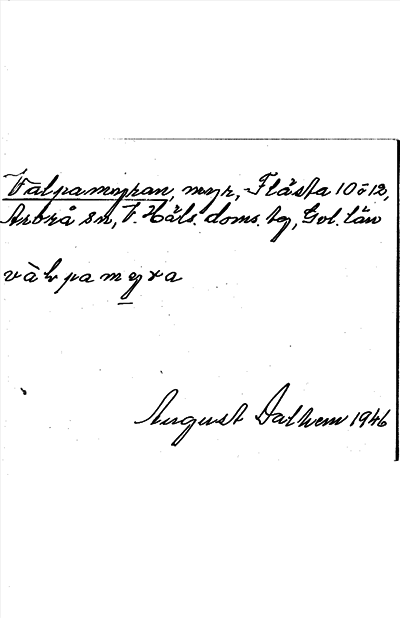 Valpamyran, myr, Flästa 10 o 12,
Arbrå sn, V. Häls. doms. tg, Gvl. län
vàlpamyra
August Dalhem 1946